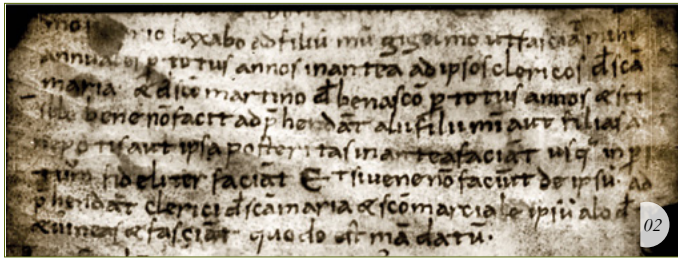 laxabo ad filiū mū gigelmo ut faiciā mihi
annua p totus annos in antea ad ipsos clericos d̄ scā
maria & diuō martino d̄ benascō p totus annos & si
ille bene nō facit ad p̄hendāt aluī filiu mī aut filias aut
nepotis aut ipsa posteritas in antea faciāt usq; in p
tuū fideliter faciāt Et si uene nō faciūt de ipsu ad
p̄hendāt clerici d̄ scā maria & scō marciale ipsū alod
& uineas & fasciāt quodo est mādatū.
02